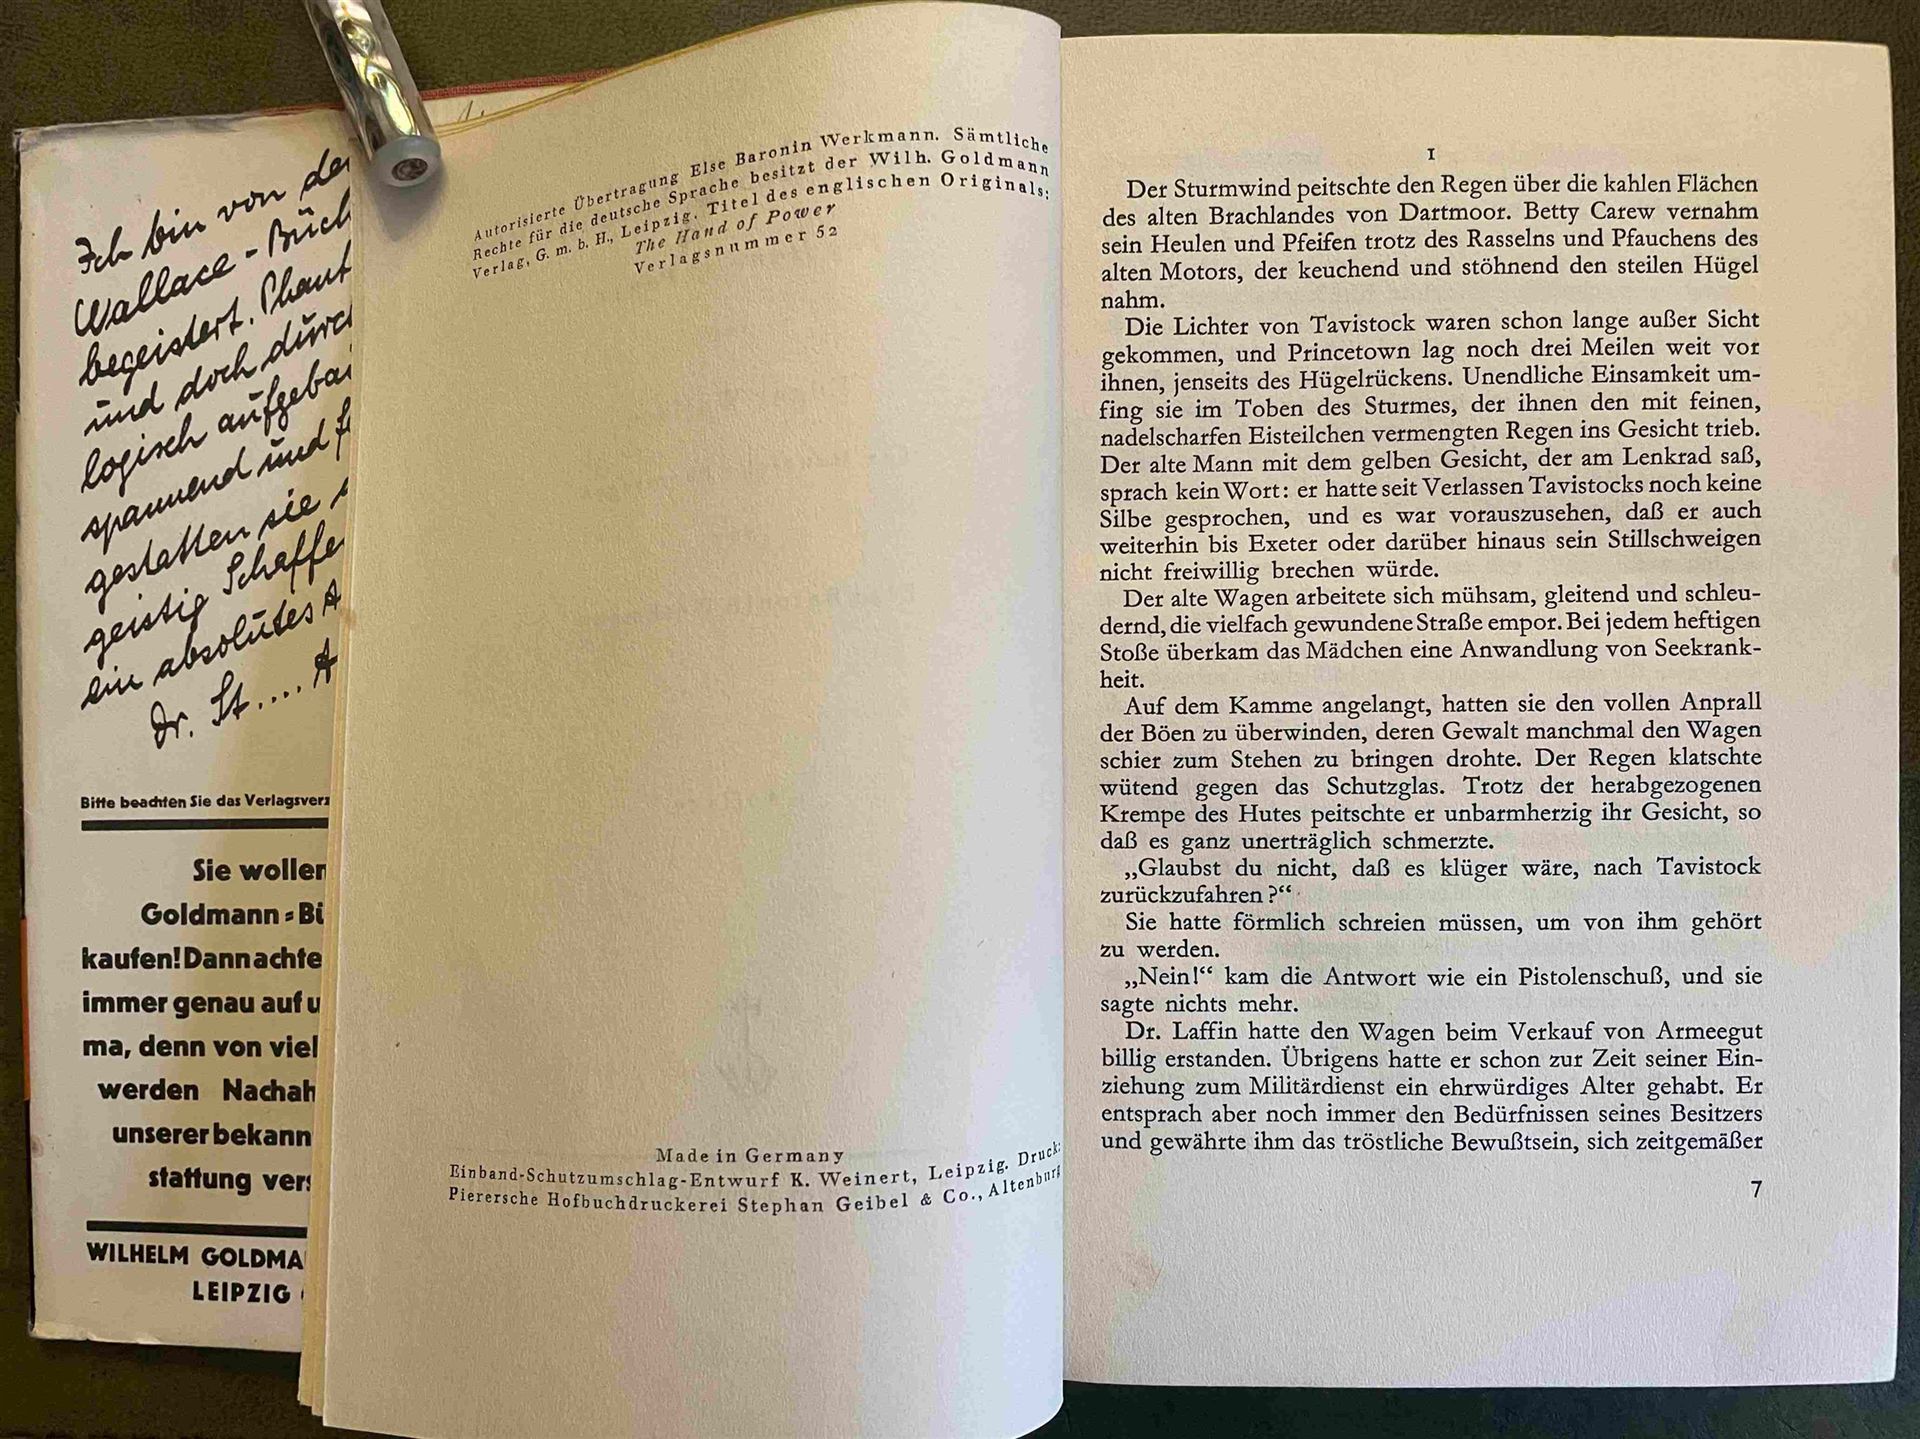 Ich bin von de
Wallace-Büch
begeistert. Phant
und doch durc
logisch aufgeba
spannend und
gestatten sie
geistig Schaffe
ein absolutes A
Dr. St....
Bitte beachten Sie das Verlagsverz
Sie woller
Goldmann-Bü
kaufen! Dann achte
immer genau auf u
ma, denn von viel
werden Nachah
unserer bekann
stattung vers
WILHELM GOLDMA
LEIPZIG
Autorisierte Übertragung Else Baronin Werkmann. Sämtliche
Rechte für die deutsche Sprache besitzt der Wilh. Goldmann
Verlag, G. m. b. H., Leipzig. Titel des englischen Originals:
The Hand of Power
Verlagsnummer 52
Made in Germany
Einband-Schutzumschlag-Entwurf K. Weinert, Leipzig. Druck:
Pierersche Hofbuchdruckerei Stephan Geibel & Co., Altenburg
I
Der Sturmwind peitschte den Regen über die kahlen Flächen
des alten Brachlandes von Dartmoor. Betty Carew vernahm
sein Heulen und Pfeifen trotz des Rasselns und Pfauchens des
alten Motors, der keuchend und stöhnend den steilen Hügel
nahm.
Die Lichter von Tavistock waren schon lange außer Sicht
gekommen, und Princetown lag noch drei Meilen weit vor
ihnen, jenseits des Hügelrückens. Unendliche Einsamkeit um-
fing sie im Toben des Sturmes, der ihnen den mit feinen,
nadelscharfen Eisteilchen vermengten Regen ins Gesicht trieb.
Der alte Mann mit dem gelben Gesicht, der am Lenkrad saß,
sprach kein Wort: er hatte seit Verlassen Tavistocks noch keine
Silbe gesprochen, und es war vorauszusehen, daß er auch
weiterhin bis Exeter oder darüber hinaus sein Stillschweigen
nicht freiwillig brechen würde.
Der alte Wagen arbeitete sich mühsam, gleitend und schleu-
dernd, die vielfach gewundene Straße empor. Bei jedem heftigen
Stoße überkam das Mädchen eine Anwandlung von Seekrank-
heit.
Auf dem Kamme angelangt, hatten sie den vollen Anprall
der Böen zu überwinden, deren Gewalt manchmal den Wagen
schier zum Stehen zu bringen drohte. Der Regen klatschte
wütend gegen das Schutzglas. Trotz der herabgezogenen
Krempe des Hutes peitschte er unbarmherzig ihr Gesicht, so
daß es ganz unerträglich schmerzte.
„Glaubst du nicht, daß es klüger wäre, nach Tavistock
zurückzufahren?“
Sie hatte förmlich schreien müssen, um von ihm gehört
zu werden.
„Nein!“ kam die Antwort wie ein Pistolenschuß, und sie
sagte nichts mehr.
Dr. Laffin hatte den Wagen beim Verkauf von Armeegut
billig erstanden. Übrigens hatte er schon zur Zeit seiner Ein-
ziehung zum Militärdienst ein ehrwürdiges Alter gehabt. Er
entsprach aber noch immer den Bedürfnissen seines Besitzers
und gewährte ihm das tröstliche Bewußtsein, sich zeitgemäßer
7